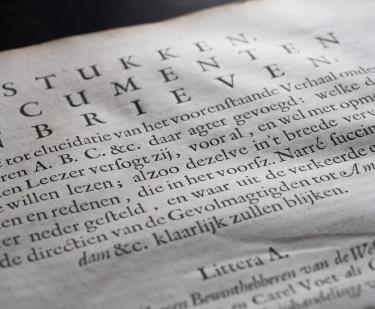 STUKKEN.
CUMENTEN
BRIEVEN.
tot elucidatie van het voorenstaande Verhaal onder
ren A. B. C. &c. daar agter gevoegd: welke d
en Leezer versogt zij, voor al, en wel met opm
willen lezen; alzoo dezelve in't breede verv
en en redenen, die in het voorsz. Narré succin
er neder gesteld, en waar uit de verkeerde e
de directien van de Gevolmagtigden tot Am
dam &c. klaarlijk zullen blijken.
Littera A.
Bewinthebberen van de Wes
en Carel Voet als
handelinge v